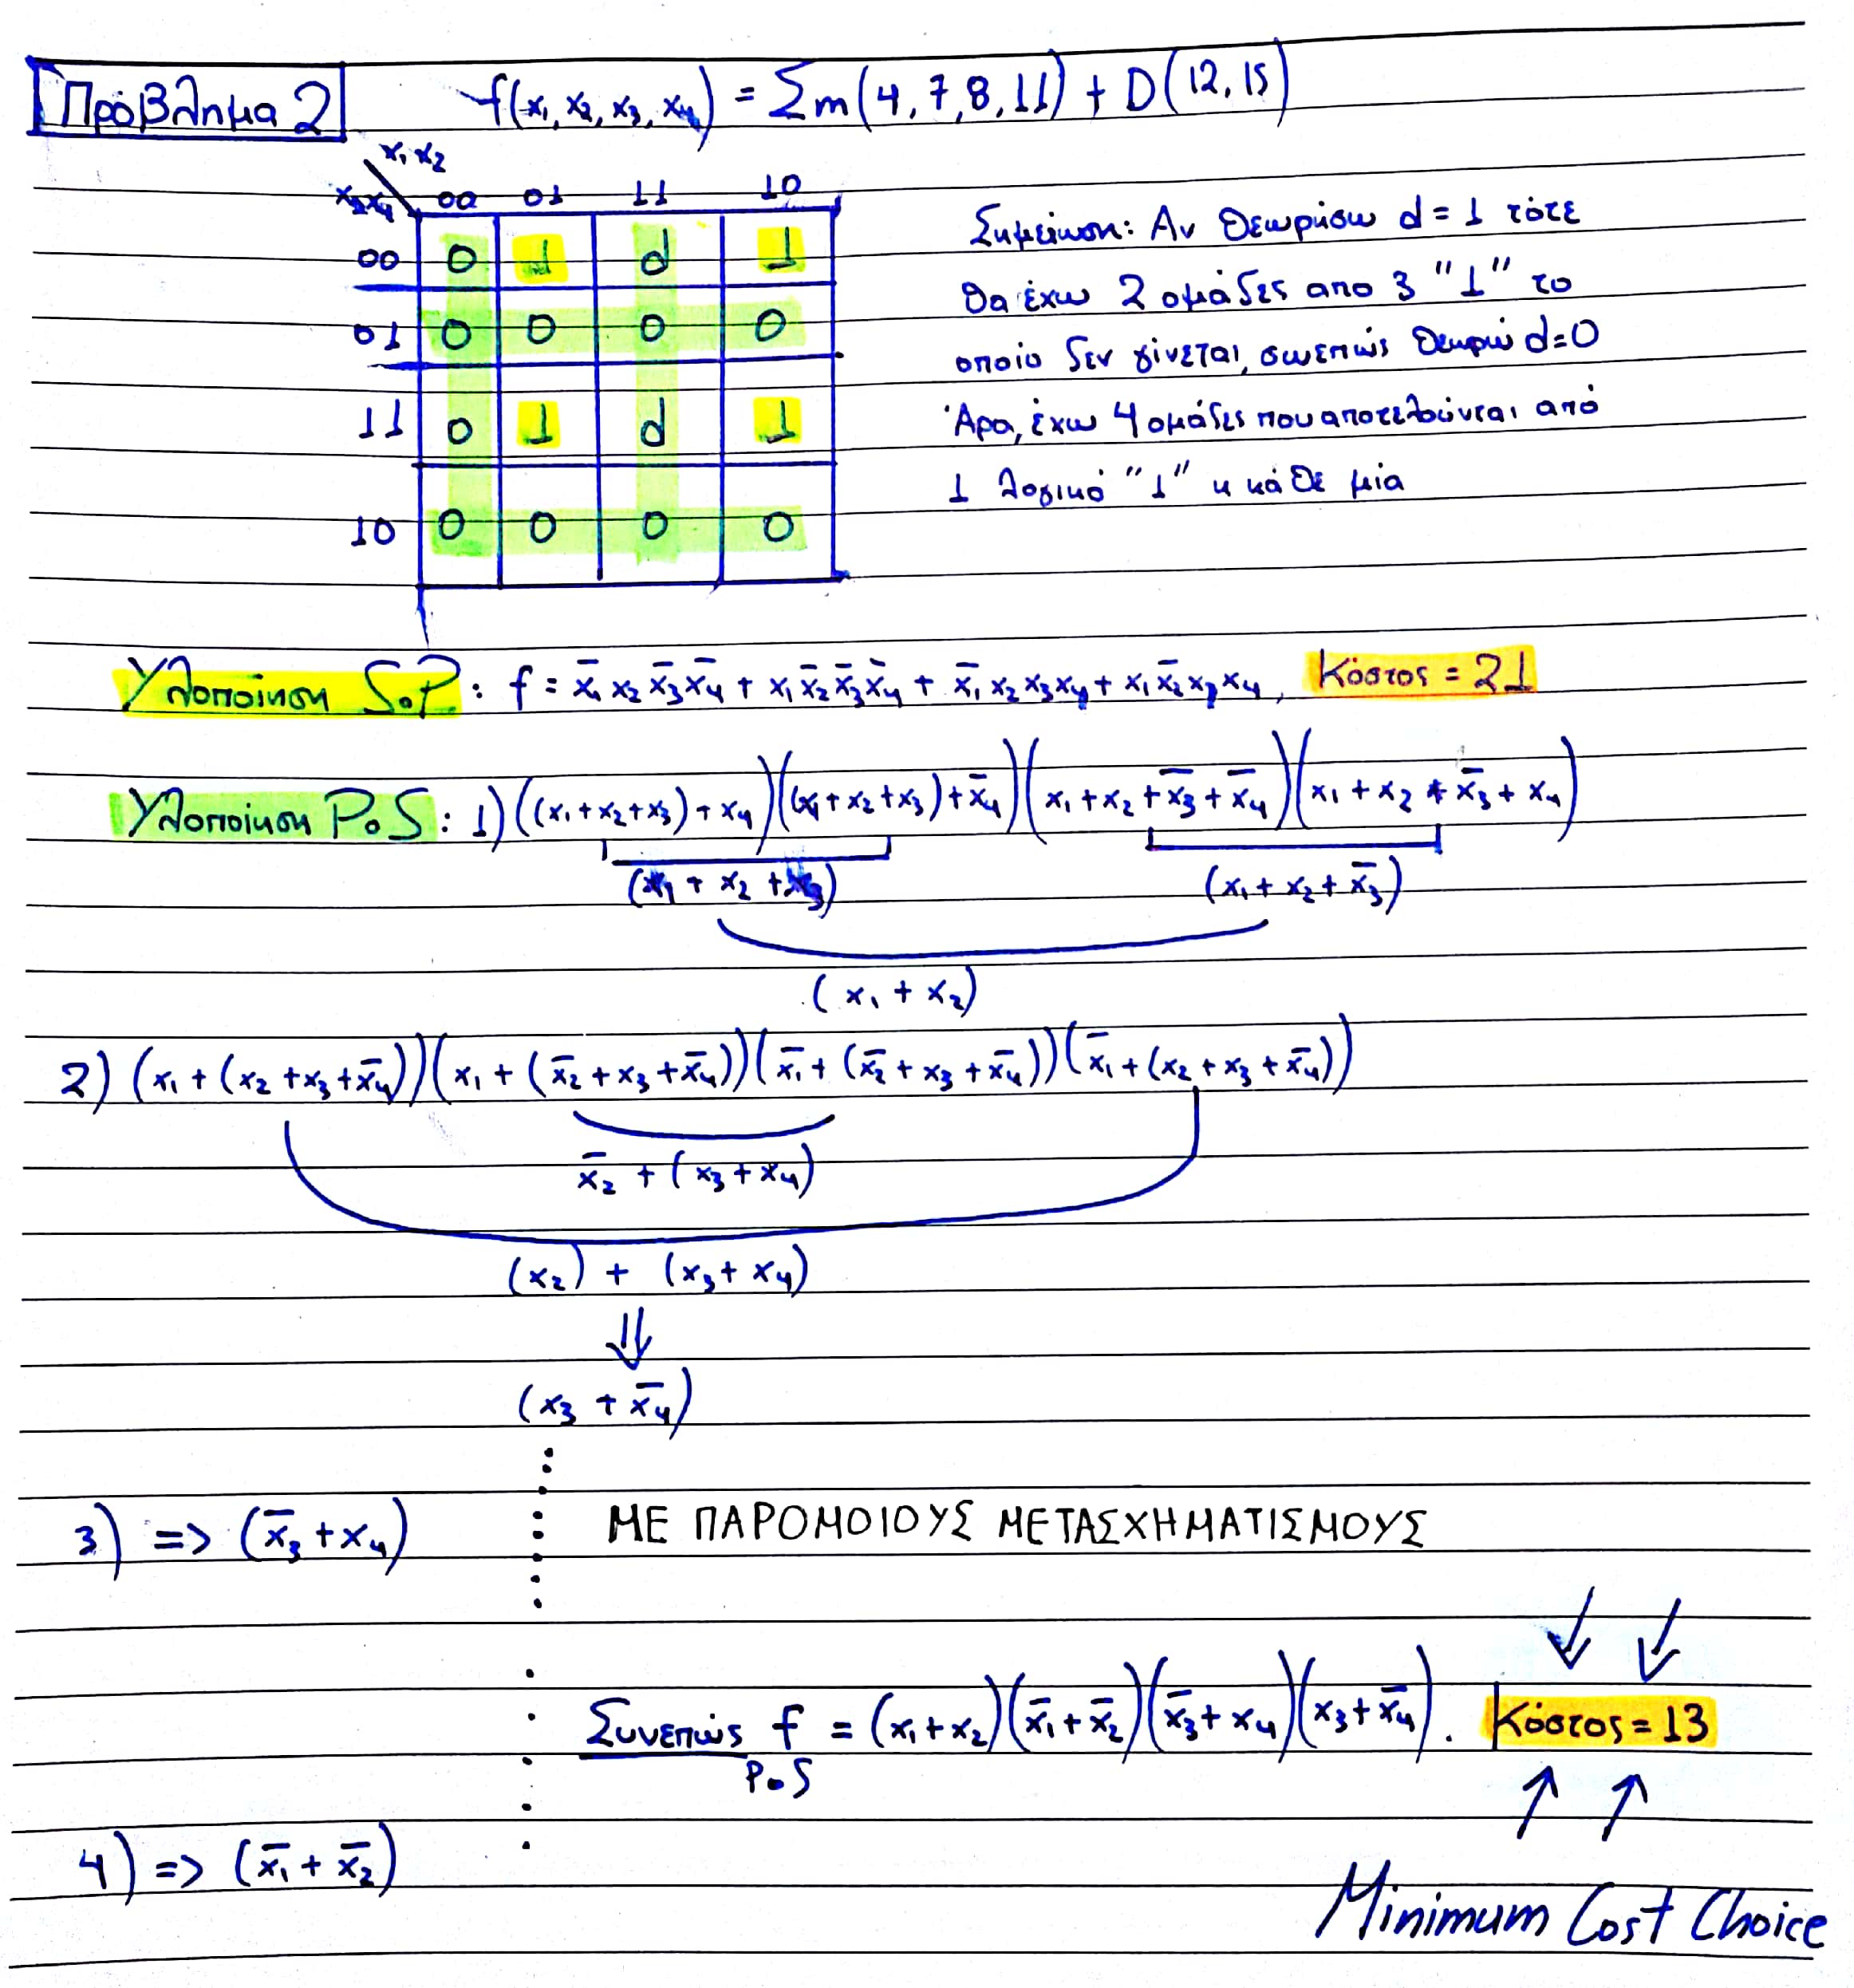 Πρόβλημα 2 f(x₁, x₂, x₃, x₄) = Σm(4, 7, 8, 11) + D(12, 15)
x₁ x₂
x₃x₄ 00 01 11 10
00 0 1 d 1
01 0 0 0 0
11 0 1 d 1
10 0 0 0 0
Σημείωση: Αν θεωρήσω d = 1 τότε
θα έχω 2 ομάδες απο 3 "1" το
οποίο δεν γίνεται, συνεπώς θεωρώ d=0
Άρα, έχω 4 ομάδες που αποτελούνται από
1 λογικό "1" η κάθε μία
Υλοποίηση SoP: f = x̄₁ x₂ x̄₃ x̄₄ + x₁ x̄₂ x̄₃ x̄₄ + x̄₁ x₂ x₃ x₄ + x₁ x̄₂ x₃ x₄, Κόστος = 21
Υλοποίηση PoS: 1) ((x₁ + x₂ + x₃) + x₄)((x₁ + x₂ + x₃) + x̄₄)(x₁ + x₂ + x̄₃ + x̄₄)(x₁ + x₂ + x̄₃ + x₄)
(x₁ + x₂ + x₃) (x₁ + x₂ + x̄₃)
(x₁ + x₂)
2) (x₁ + (x₂ + x₃ + x̄₄))(x₁ + (x̄₂ + x₃ + x̄₄))(x̄₁ + (x̄₂ + x₃ + x̄₄))(x̄₁ + (x₂ + x₃ + x̄₄))
x̄₂ + (x₃ + x₄)
(x₂) + (x₃ + x₄)
⇓
(x₃ + x̄₄)
3) => (x̄₃ + x₄) ΜΕ ΠΑΡΟΜΟΙΟΥΣ ΜΕΤΑΣΧΗΜΑΤΙΣΜΟΥΣ
Συνεπώς f = (x₁ + x₂)(x̄₁ + x̄₂)(x̄₃ + x₄)(x₃ + x̄₄). Κόστος = 13
PoS
4) => (x̄₁ + x̄₂)
Minimum Cost Choice